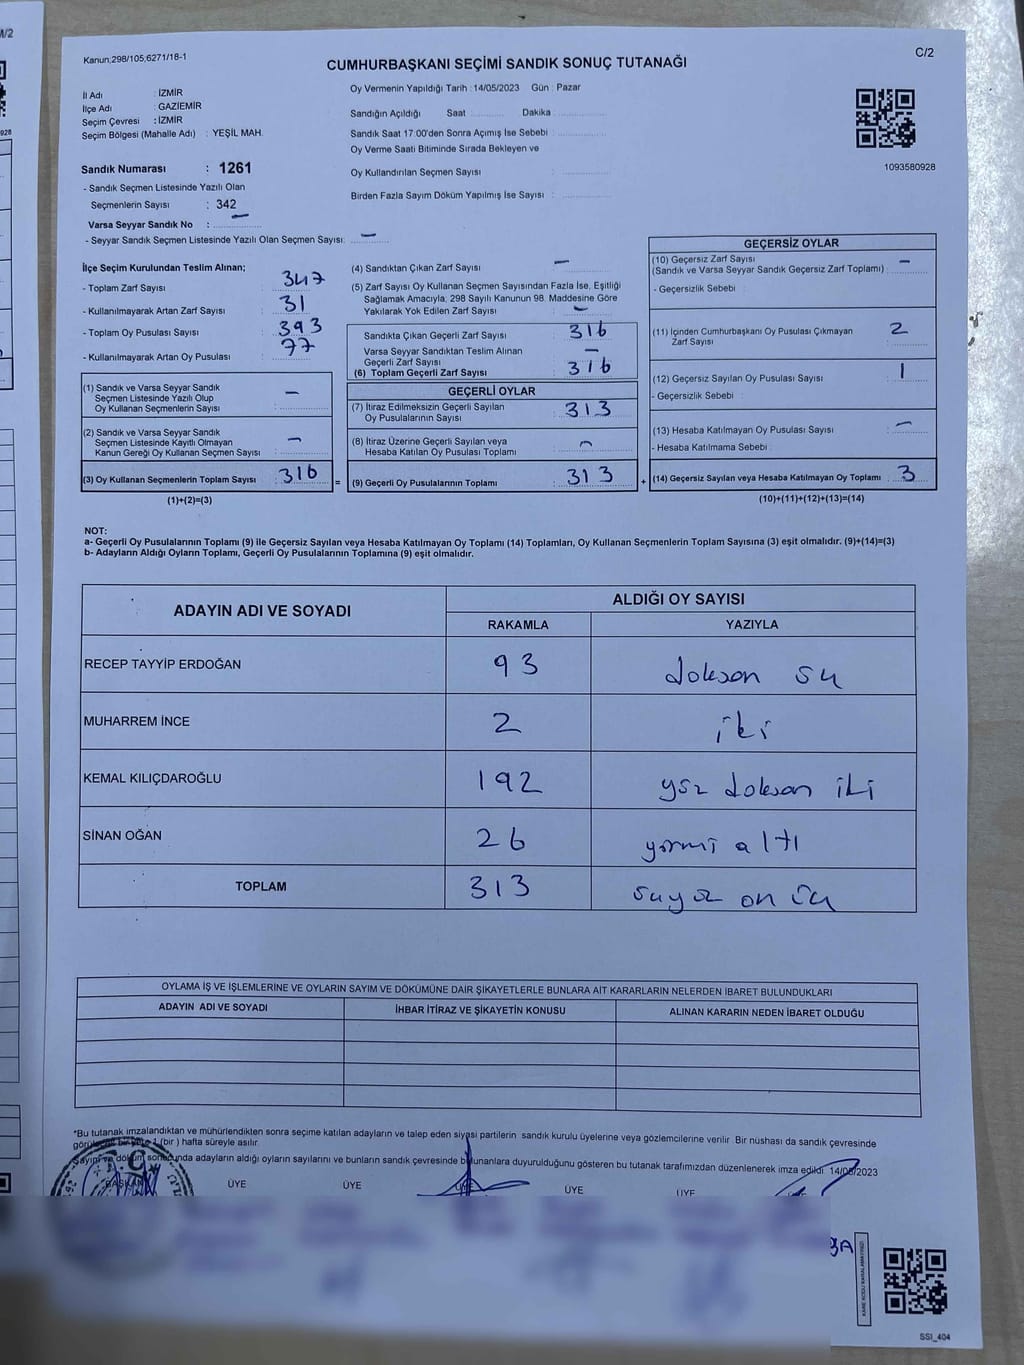 Kanun;298/105;6271/18-1
C/2
CUMHURBAŞKANI SEÇİMİ SANDIK SONUÇ TUTANAĞI
İl Adı : İZMİR
İlçe Adı : GAZİEMİR
Seçim Çevresi : İZMİR
Seçim Bölgesi (Mahalle Adı) : YEŞİL MAH.
Sandık Numarası : 1261
- Sandık Seçmen Listesinde Yazılı Olan
Seçmenlerin Sayısı : 342
Varsa Seyyar Sandık No : —
- Seyyar Sandık Seçmen Listesinde Yazılı Olan Seçmen Sayısı: —
Oy Vermenin Yapıldığı Tarih : 14/05/2023 Gün : Pazar
Sandığın Açıldığı Saat Dakika
Sandık Saat 17:00'den Sonra Açımış İse Sebebi :
Oy Verme Saati Bitiminde Sırada Bekleyen ve
Oy Kullandırılan Seçmen Sayısı :
Birden Fazla Sayım Döküm Yapılmış İse Sayısı :
1093580928
İlçe Seçim Kurulundan Teslim Alınan;
- Toplam Zarf Sayısı : 347
- Kullanılmayarak Artan Zarf Sayısı : 31
- Toplam Oy Pusulası Sayısı : 393
- Kullanılmayarak Artan Oy Pusulası : 77
(1) Sandık ve Varsa Seyyar Sandık
Seçmen Listesinde Yazılı Olup
Oy Kullanan Seçmenlerin Sayısı : —
(2) Sandık ve Varsa Seyyar Sandık
Seçmen Listesinde Kayıtlı Olmayan
Kanun Gereği Oy Kullanan Seçmen Sayısı : —
(3) Oy Kullanan Seçmenlerin Toplam Sayısı : 316
(1)+(2)=(3)
=
(4) Sandıktan Çıkan Zarf Sayısı : —
(5) Zarf Sayısı Oy Kullanan Seçmen Sayısından Fazla İse, Eşitliği
Sağlamak Amacıyla, 298 Sayılı Kanunun 98. Maddesine Göre
Yakılarak Yok Edilen Zarf Sayısı : —
Sandıkta Çıkan Geçerli Zarf Sayısı : 316
Varsa Seyyar Sandıktan Teslim Alınan
Geçerli Zarf Sayısı : —
(6) Toplam Geçerli Zarf Sayısı : 316
GEÇERLİ OYLAR
(7) İtiraz Edilmeksizin Geçerli Sayılan
Oy Pusulalarının Sayısı : 313
(8) İtiraz Üzerine Geçerli Sayılan veya
Hesaba Katılan Oy Pusulası Toplamı : —
(9) Geçerli Oy Pusulalarının Toplamı : 313
+
GEÇERSİZ OYLAR
(10) Geçersiz Zarf Sayısı
(Sandık ve Varsa Seyyar Sandık Geçersiz Zarf Toplamı) : —
- Geçersizlik Sebebi :
(11) İçinden Cumhurbaşkanı Oy Pusulası Çıkmayan
Zarf Sayısı : 2
(12) Geçersiz Sayılan Oy Pusulası Sayısı : 1
- Geçersizlik Sebebi :
(13) Hesaba Katılmayan Oy Pusulası Sayısı : —
- Hesaba Katılmama Sebebi :
(14) Geçersiz Sayılan veya Hesaba Katılmayan Oy Toplamı : 3
(10)+(11)+(12)+(13)=(14)
NOT:
a- Geçerli Oy Pusulalarının Toplamı (9) ile Geçersiz Sayılan veya Hesaba Katılmayan Oy Toplamı (14) Toplamları, Oy Kullanan Seçmenlerin Toplam Sayısına (3) eşit olmalıdır. (9)+(14)=(3)
b- Adayların Aldığı Oyların Toplamı, Geçerli Oy Pusulalarının Toplamına (9) eşit olmalıdır.
ADAYIN ADI VE SOYADI ALDIĞI OY SAYISI
RAKAMLA YAZIYLA
RECEP TAYYİP ERDOĞAN 93 doksan üç
MUHARREM İNCE 2 iki
KEMAL KILIÇDAROĞLU 192 yüz doksan iki
SİNAN OĞAN 26 yirmi altı
TOPLAM 313 üçyüz on üç
OYLAMA İŞ VE İŞLEMLERİNE VE OYLARIN SAYIM VE DÖKÜMÜNE DAİR ŞİKAYETLERLE BUNLARA AİT KARARLARIN NELERDEN İBARET BULUNDUKLARI
ADAYIN ADI VE SOYADI İHBAR İTİRAZ VE ŞİKAYETİN KONUSU ALINAN KARARIN NEDEN İBARET OLDUĞU
*Bu tutanak imzalandıktan ve mühürlendikten sonra seçime katılan adayların ve talep eden siyasi partilerin sandık kurulu üyelerine veya gözlemcilerine verilir Bir nüshası da sandık çevresinde
görülecek bir yere 1 (bir ) hafta süreyle asılır.
Sayım ve döküm sonucunda adayların aldığı oyların sayılarını ve bunların sandık çevresinde bulunanlara duyurulduğunu gösteren bu tutanak tarafımızdan düzenlenerek imza edildi. 14/05/2023
BAŞKAN ÜYE ÜYE ÜYE ÜYE ÜYE
SSI_404